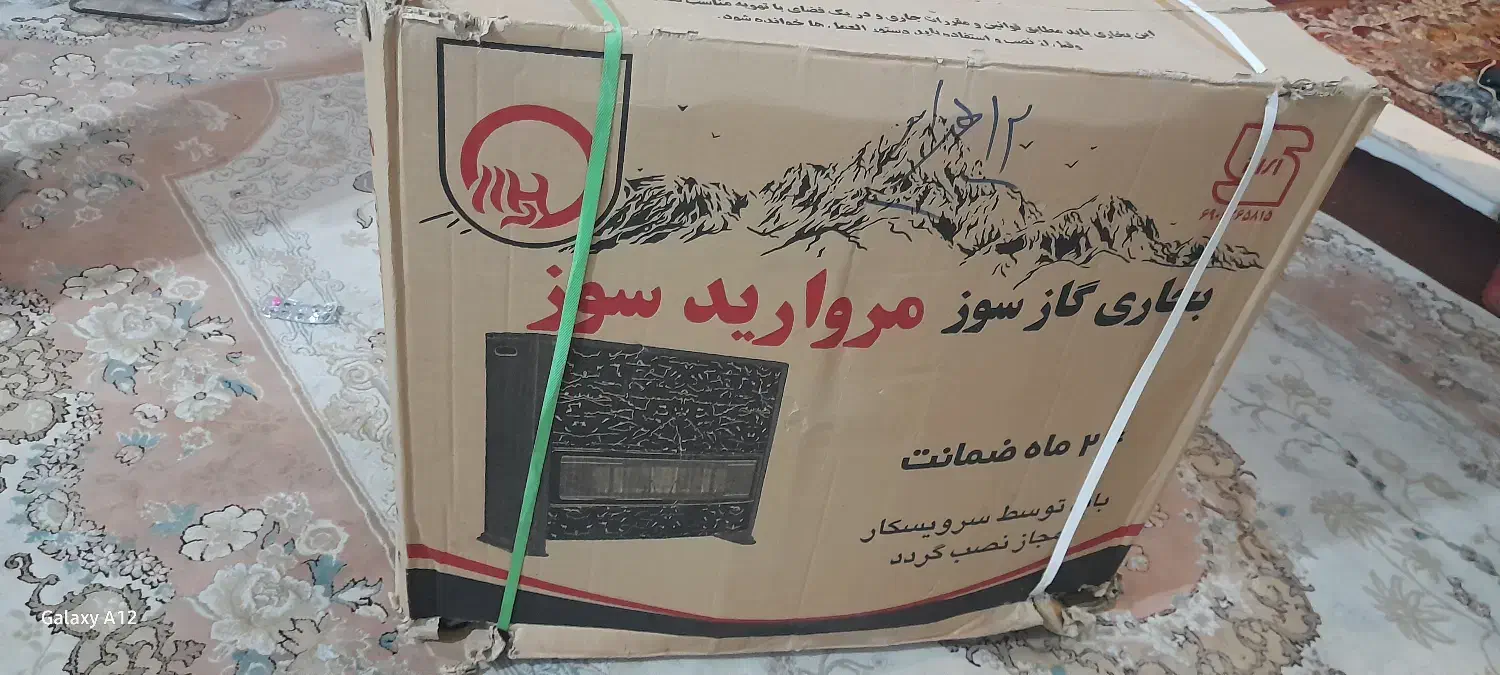 این بخاری باید مطابق قوانین و مقررات جاری و در یک فضای با تهویه مناسب
قبل از نصب و استفاده باید دستور العمل ها خوانده شود.
بخاری گاز سوز مروارید سوز
ماه ضمانت
توسط سرویسکار
مجاز نصب گردد
Galaxy A12